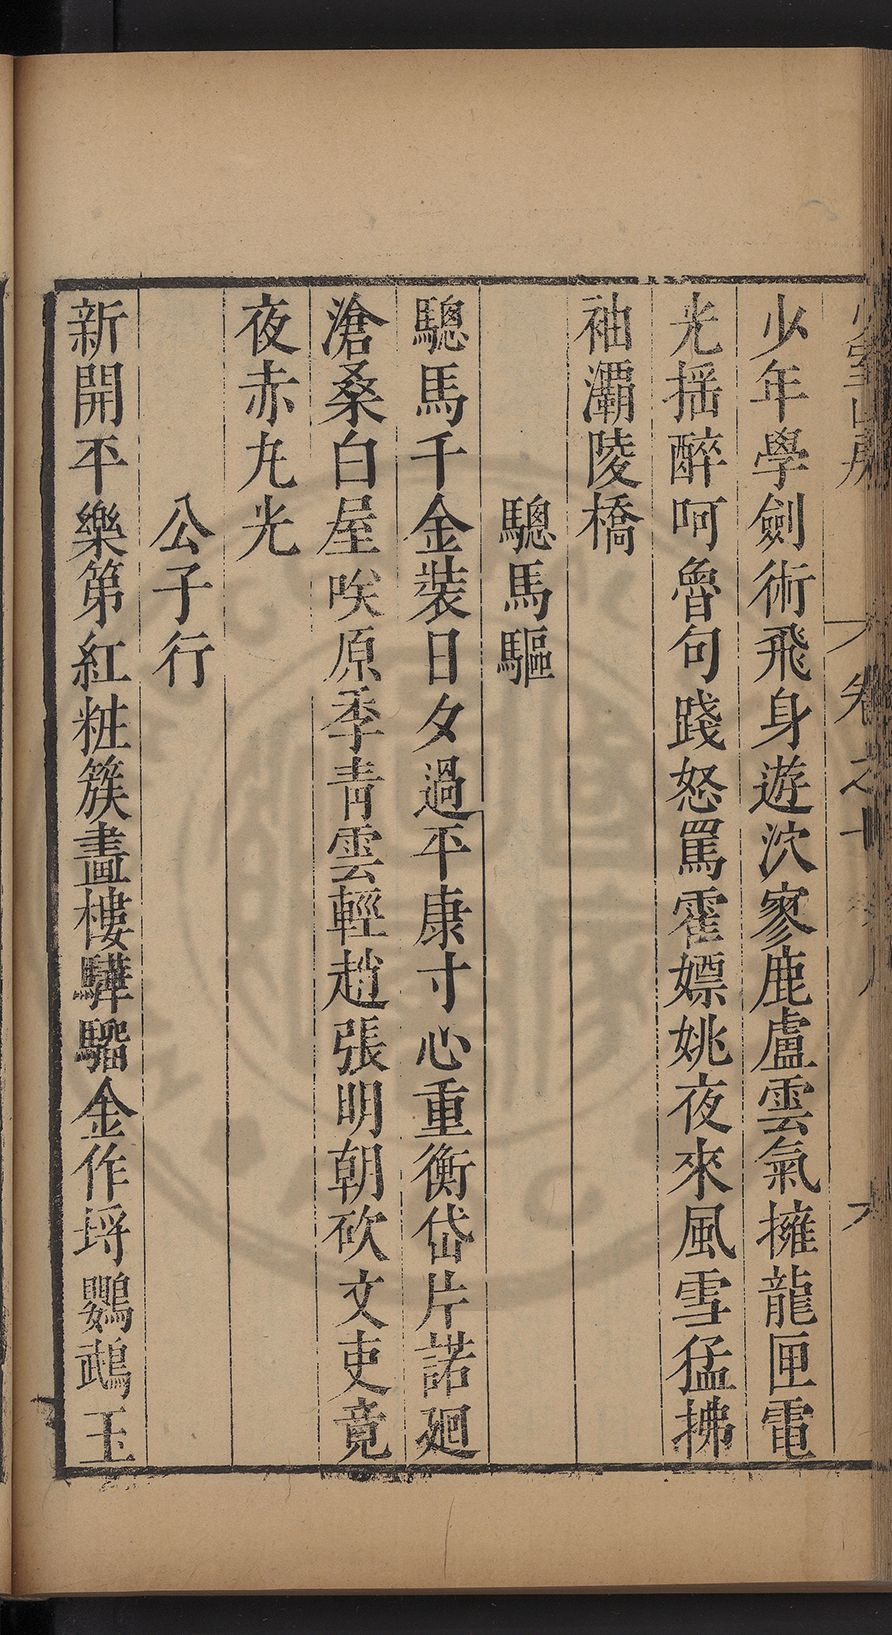 少室山房
卷之十
少年學劍術飛身遊泬寥鹿盧雲氣擁龍匣電
光揺醉呵魯句踐怒罵霍嫖姚夜來風雪猛拂
袖灞陵橋
驄馬驅
驄馬千金裝日夕過平康寸心重衡岱片諾廻
滄桑白屋唉原季青雲輕趙張明朝砍文吏竟
夜赤丸光
公子行
新開平樂第紅粧簇畫樓驊騮金作埒鸚鵡玉